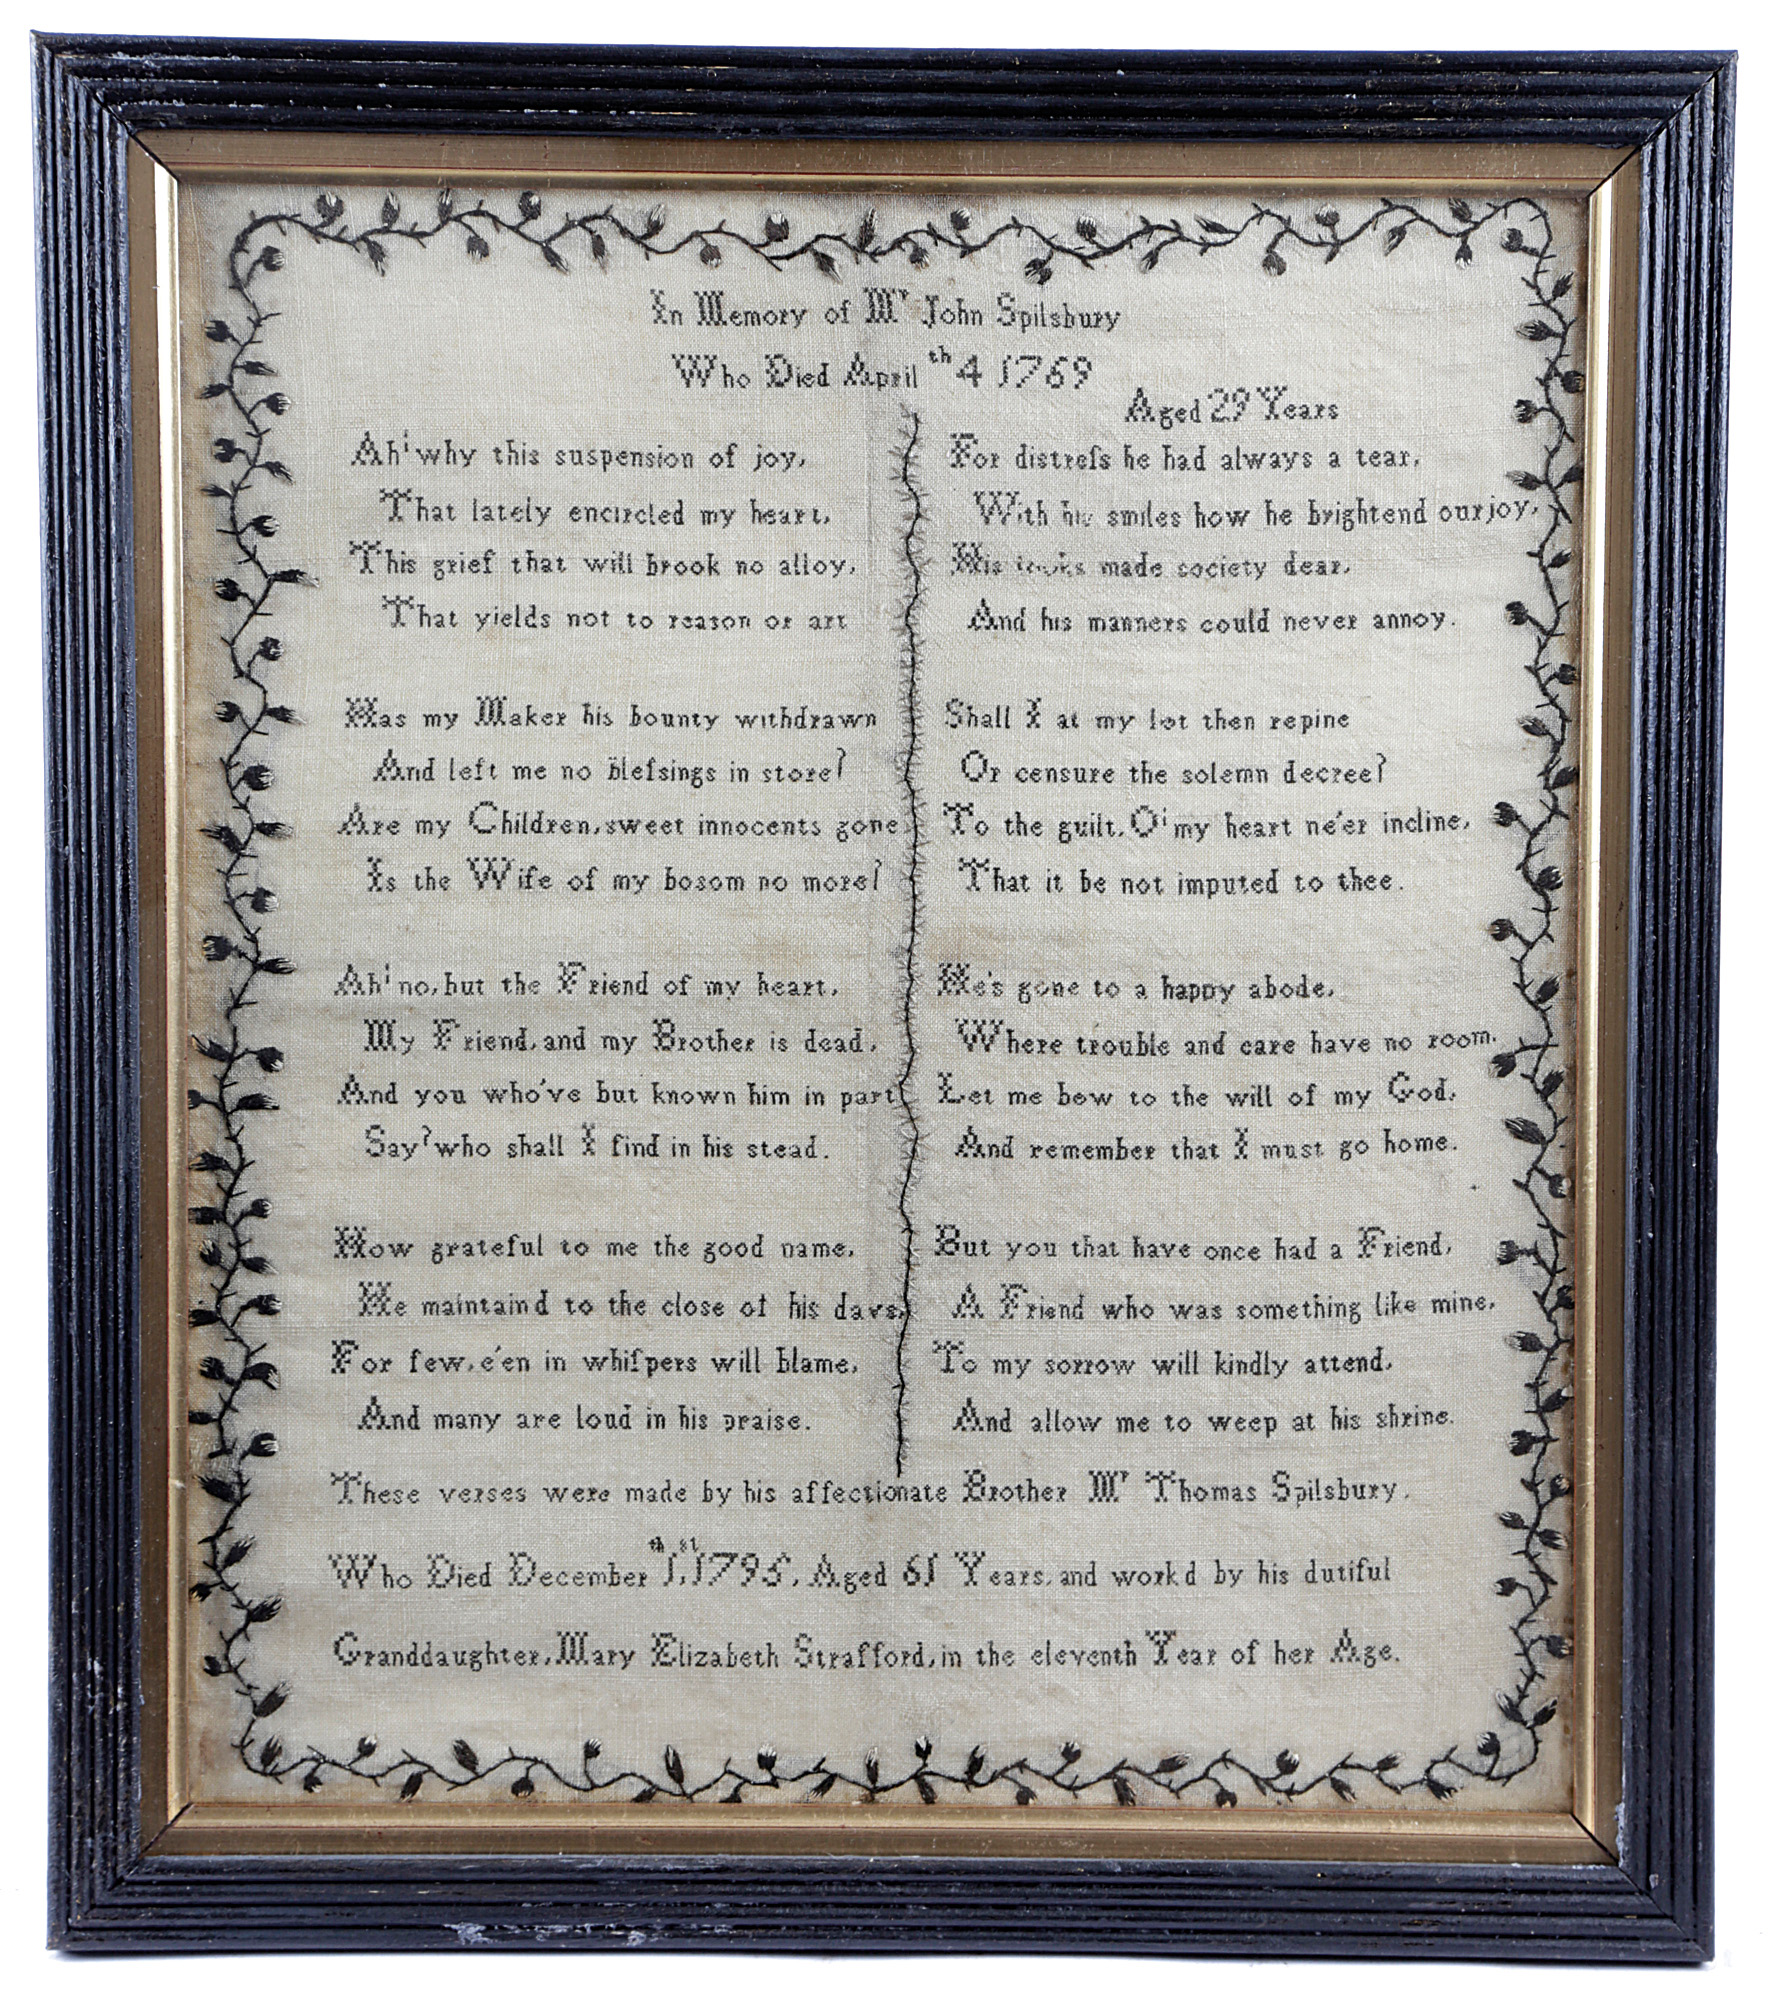 In Memory of Mr John Spilsbury
Who Died April th 4 1769
Aged 29 Years
Ah! why this suspension of joy,
That lately encircled my heart,
This grief that will brook no alloy,
That yields not to reason or art
Has my Maker his bounty withdrawn
And left me no Bleſsings in store?
Are my Children, sweet innocents gone
Is the Wife of my bosom no more?
Ah! no, but the Friend of my heart,
My Friend, and my Brother is dead,
And you who've but known him in part
Say? who shall I find in his stead.
How grateful to me the good name,
He maintaind to the close of his days,
For few, e'en in whiſpers will blame,
And many are loud in his praise.
For distreſs he had always a tear,
With his smiles how he brightend our joy,
His looks made society dear,
And his manners could never annoy.
Shall I at my lot then repine
Or censure the solemn decree?
To the guilt, O! my heart ne'er incline,
That it be not imputed to thee.
He's gone to a happy abode,
Where trouble and care have no room.
Let me bow to the will of my God,
And remember that I must go home.
But you that have once had a Friend,
A Friend who was something like mine,
To my sorrow will kindly attend,
And allow me to weep at his shrine.
These verses were made by his affectionate Brother Mr Thomas Spilsbury.
Who Died December th 1,st 1795, Aged 61 Years, and workd by his dutiful
Granddaughter, Mary Elizabeth Strafford, in the eleventh Year of her Age.